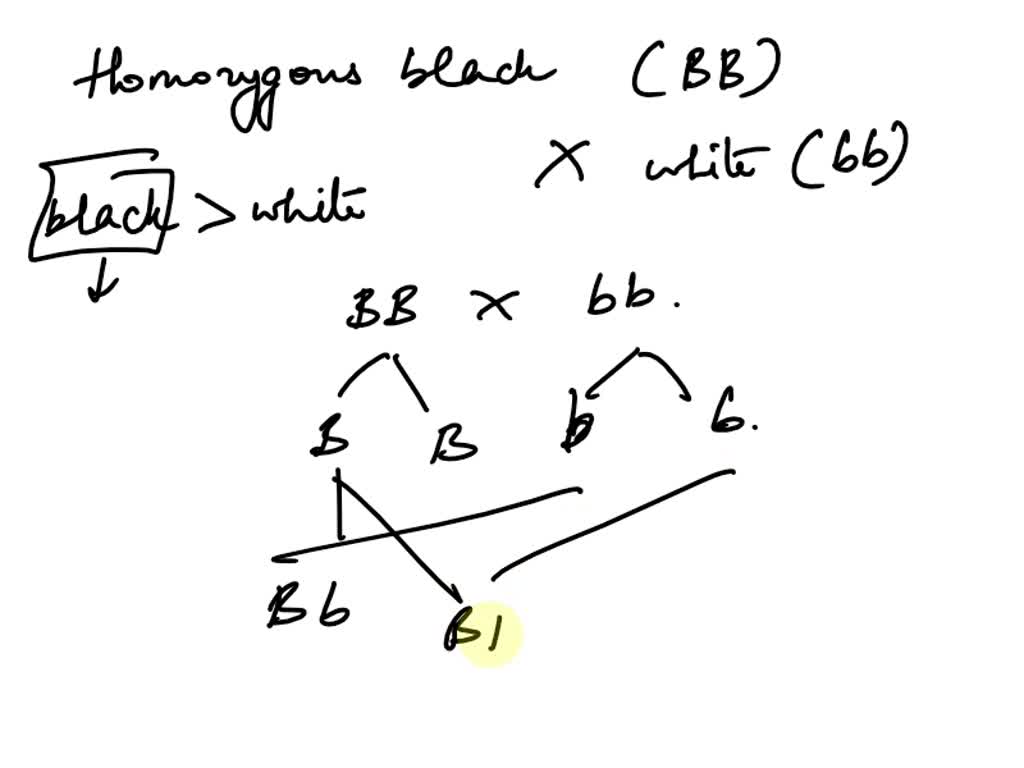 Homozygous black (BB)
X white (bb)
black > white
BB X bb.
B B b b.
Bb
B